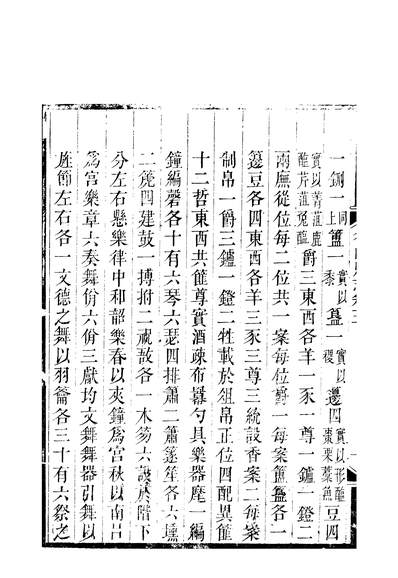 一鉶一同上簠一實以黍簋一實以稷籩四實以形鹽棗栗藁魚豆四
實以菁菹鹿醢芹菹兔醢爵三東西各羊一豕一尊一鑪一鐙二
兩廡從位每二位共一案每位爵一每案簠簋各一
籩豆各四東西各羊三豕三尊三統設香案二每案
制帛一爵三鑪一鐙二牲載於俎帛正位四配異篚
十二哲東西共篚尊實酒疏布羃勺具樂器麾一編
鐘編磬各十有六琴六瑟四排蕭二蕭篴笙各六壎
二篪四建鼓一搏拊二柷敔各一木笏六設於階下
分左右懸樂律中和韶樂春以夾鐘爲宮秋以南呂
爲宮樂章六奏舞佾六佾三獻均文舞舞器引舞以
旌節左右各一文德之舞以羽籥各三十有六祭之